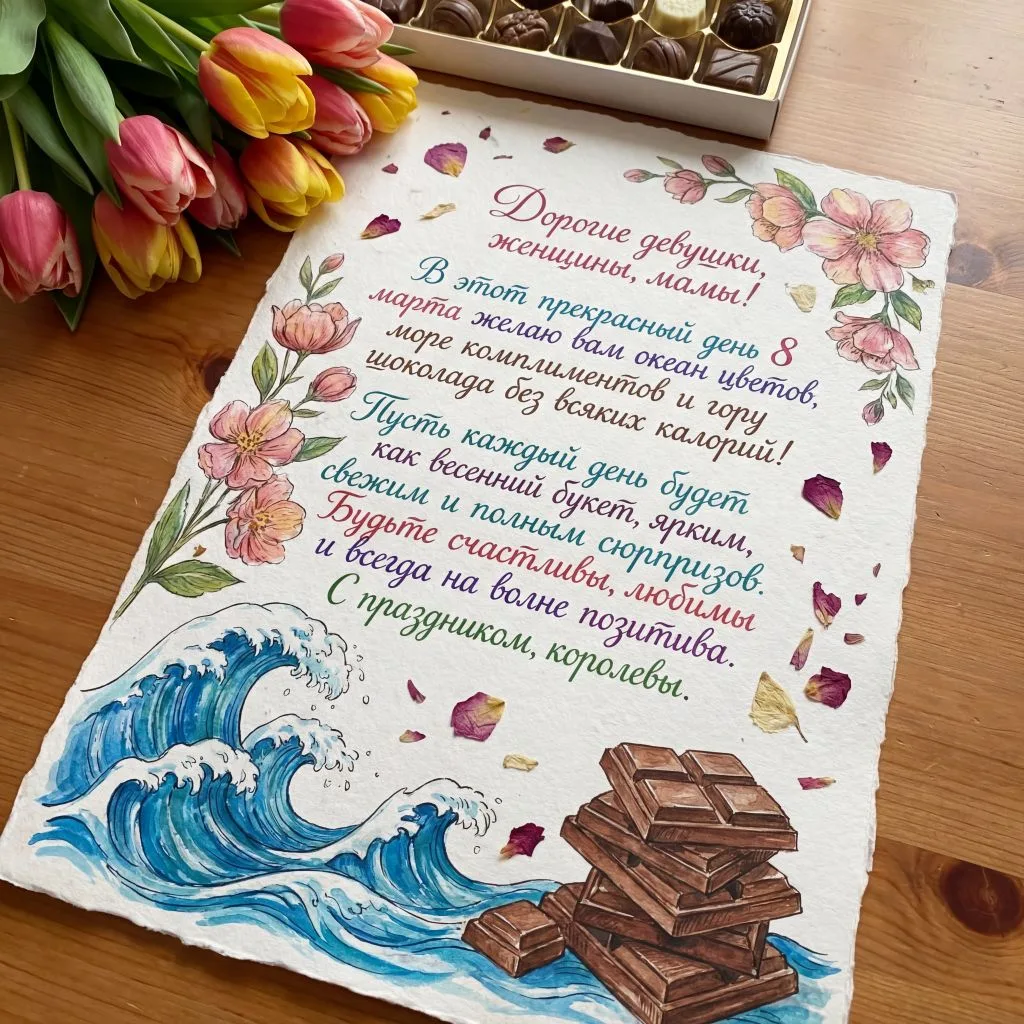 Дорогие девушки,
женщины, мамы!
В этот прекрасный день 8
марта желаю вам океан цветов,
море комплиментов и гору
шоколада без всяких калорий!
Пусть каждый день будет
как весенний букет, ярким,
свежим и полным сюрпризов.
Будьте счастливы, любимы
и всегда на волне позитива.
С праздником, королевы.